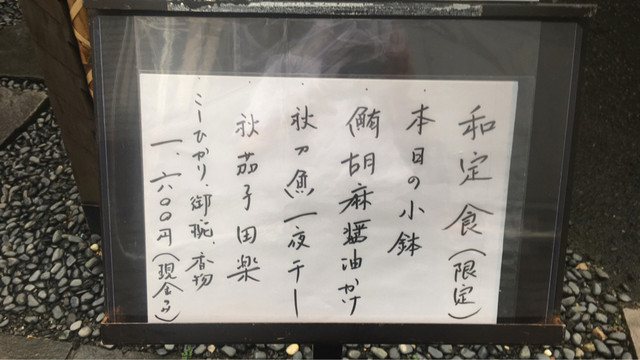 和定食(限定)
・本日の小鉢
・鮪胡麻醤油かけ
・秋刀魚一夜干し
・秋茄子田楽
・こしひかり、御椀、香物
一、六〇〇円(現金のみ)